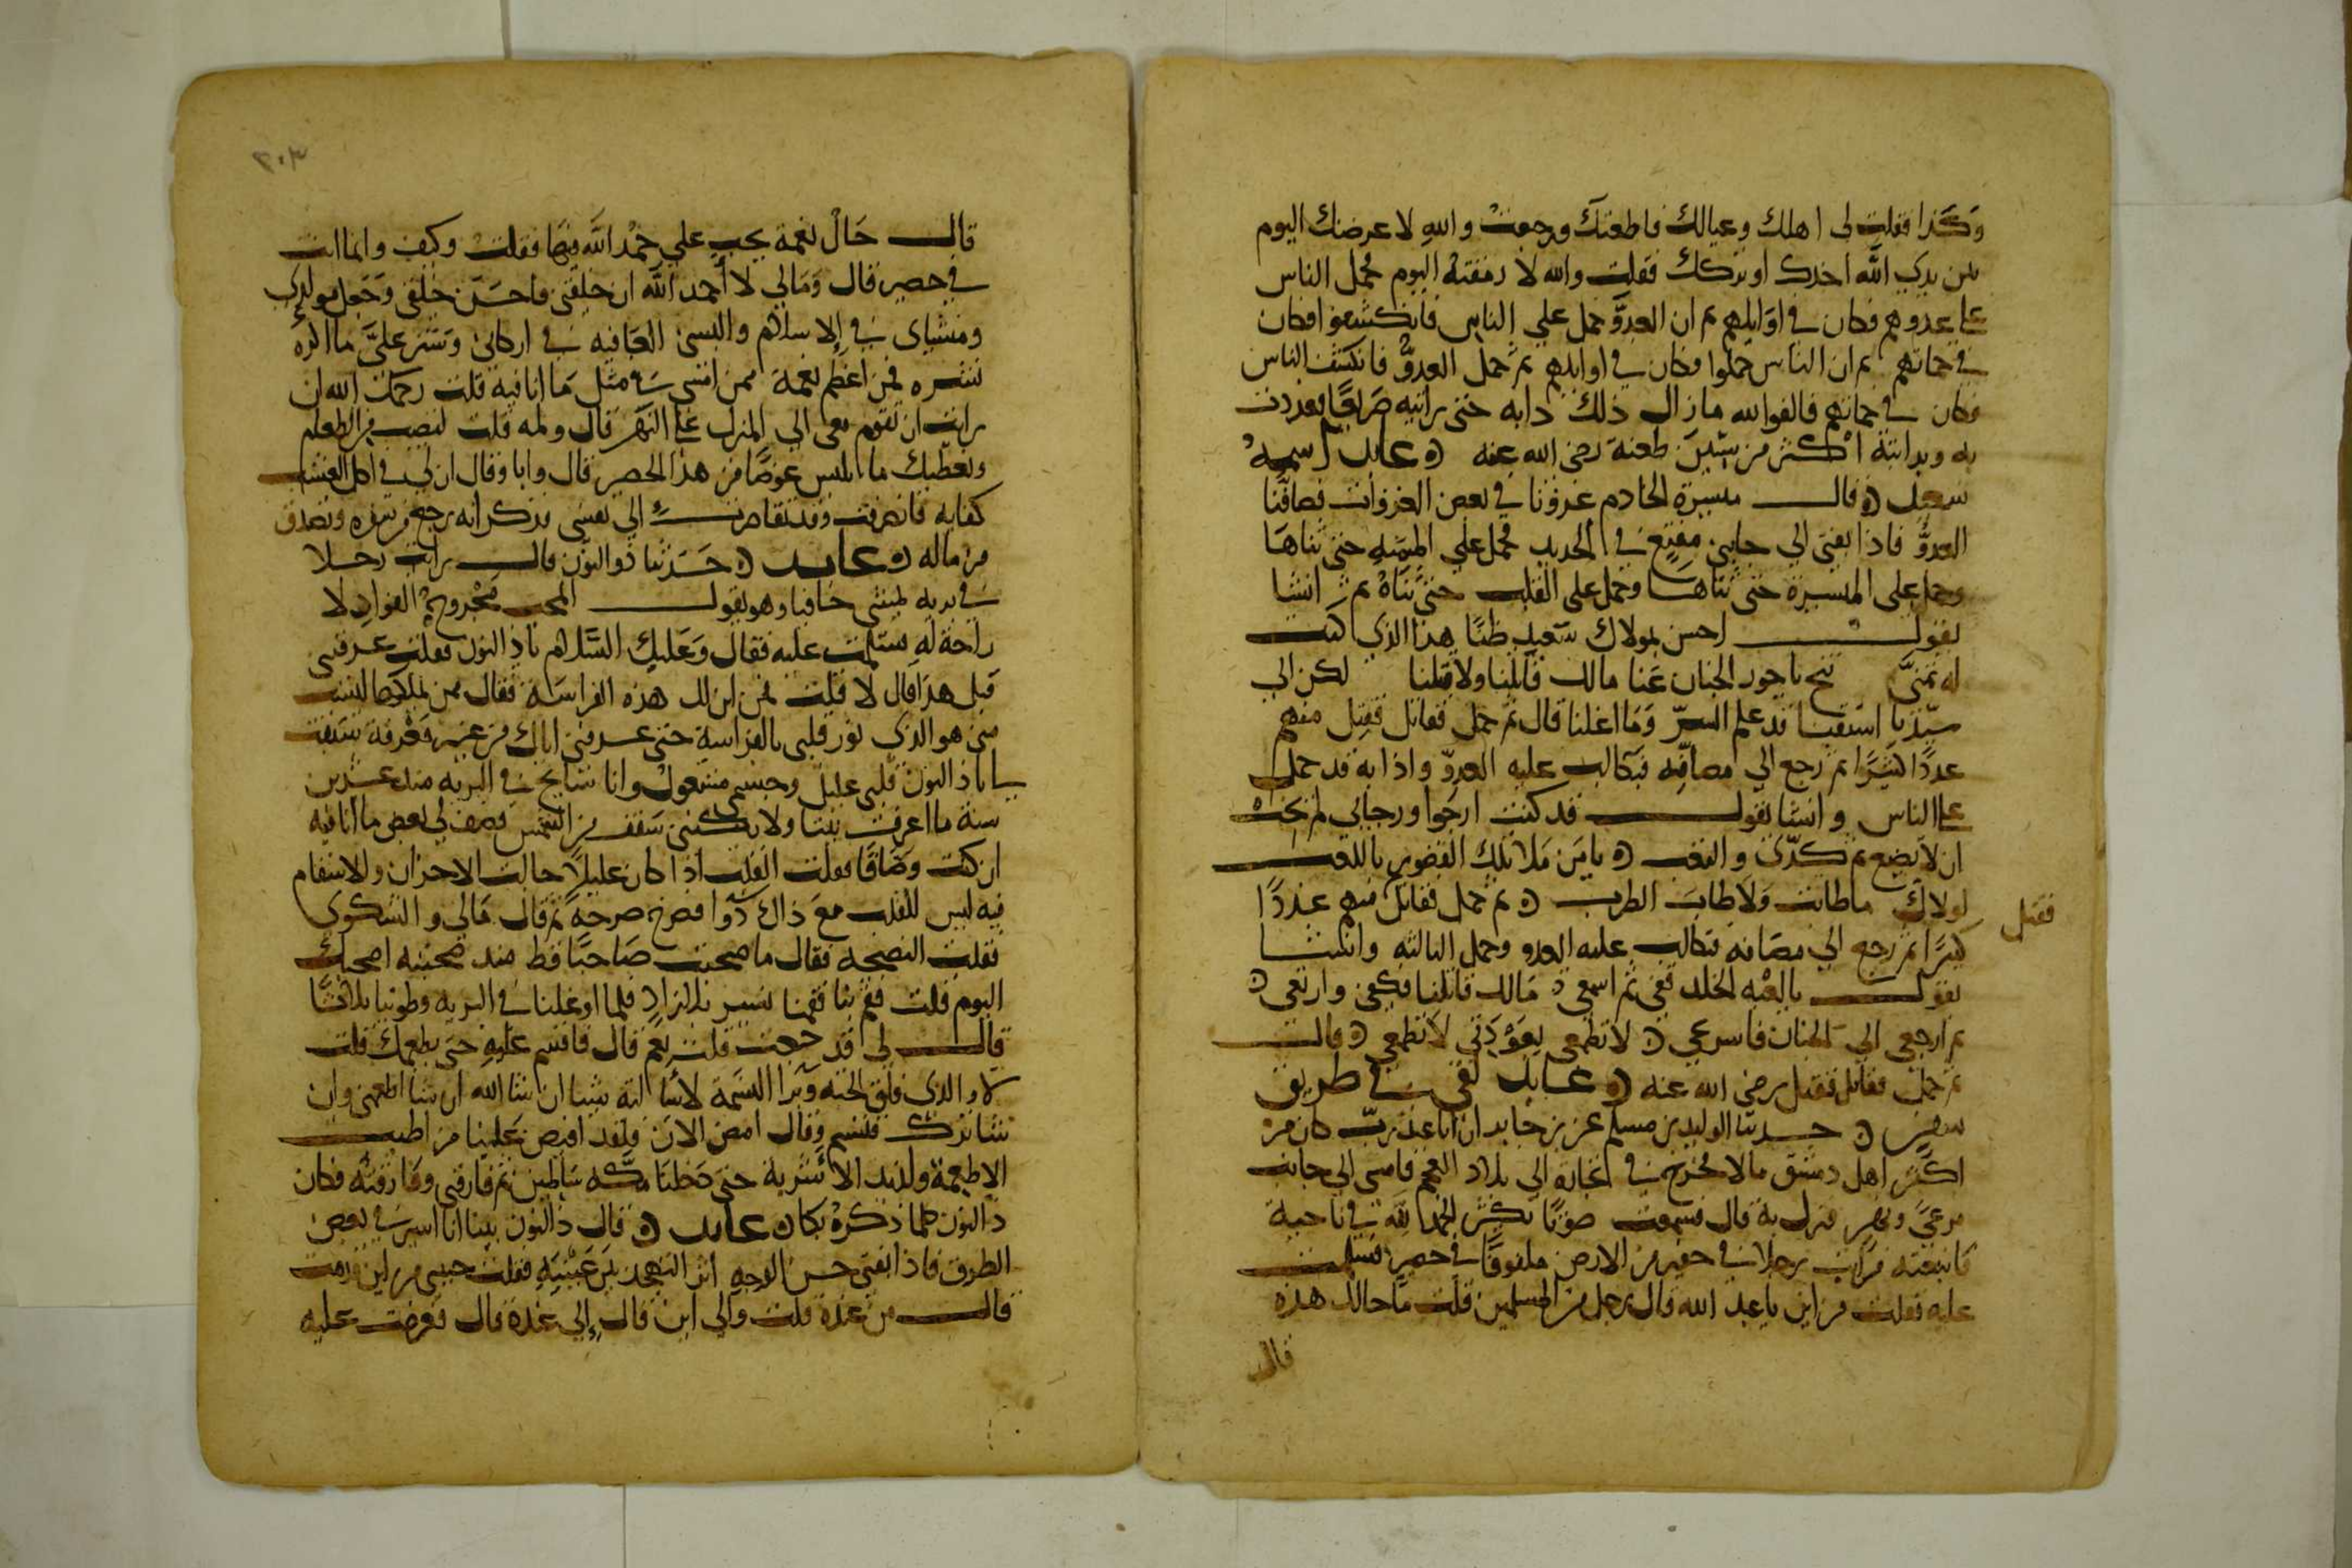 وكذا فقلت لى اهلك وعيالك فاطعتك ورجعت والله لاعرضنك اليوم
بين يدى الله اخذك او تركك فقلت والله لا رمقته اليوم فحمل الناس
على عدوهم فكان فى اوايلهم ثم ان العدوَّ حمل على الناس فانكشفوا فكان
فى حماتهم ثم ان الناس حملوا فكان فى اوايلهم ثم حمل العدوُّ فانكشف الناس
فكان فى حماتهم فالفوالله مازال ذلك دابه حتى رايته صريعًا فعددت
به وبدابته اكثر من ستين طعنة رضى الله عنه ه عابد اسمه
سعيد ه قال ميسرة الخادم غزونا فى بعض الغزوات فصافّنا
العدوُّ فاذا بفتى الى جانبى مقنع فى الحديد فحمل على الميمنه حتى ثناها
وحمل على الميسرة حتى ثناها وحمل على القلب حتى ثناه ثم انشا
يقول احسن بمولاك سعيد ظنًا هذا الذى كنت
له تمنى تنح ياحور الجنان عنا مالك قاتلنا ولا قتلنا لكن الى
سيدنا اشتقنا قد علم السرّ وما اعلنا قال ثم حمل فقاتل فقتل منهم
عددًا كثيرًا ثم رجع الى مصافّه فتكالب عليه العدوّ واذا به قد حمل
على الناس وانشا يقول قد كنت ارجوا ورجايى لم يخب
ان لا يضيع ثم كدّى والتعب ه يا من ملا تلك القصور باللعب
لولاك ماطابت ولا طاب الطرب ه ثم حمل فقاتل منهم عددًا
فقتل
كثيرًا ثم رجع الى مصافه فتكالب عليه العدو وحمل الثالثه وانشا
يقول يالعبه الخلد قفى ثم اسمعى ه مالك قاتلنا فكفى وارتعى ه
ثم ارجعى الى الجنان فاسرعى ه لا تطمعى لا تطمعى ه قال
ثم حمل فقاتل فقتل رضى الله عنه ه عابد لقى فى طريق
سفر ه حدثنا الوليد بن مسلم عن بن جابر ان ابا عبد ربّ كان من
اكثر اهل دمشق مالا فخرج فى تجاره الى بلاد العجم فامسى الى جانب
مرعى ونهر فنزل به قال فسمعت صوتًا يكثر الحمد لله فى ناحية
فاتبعته فرايت رجلا فى حفير من الارض ملفوفًا فى حصير فسلمت
عليه فقلت من اين يا عبد الله قال رجل من المسلمين قلت ما حالك هذه
قال
٢٠٣
قال حالُ نعمة يجب على حمد الله فيها فقلت وكيف وانما انت
فى حصير قال ومالى لا أحمد الله ان خلقنى فاحسن خلقى وجعل مولدى
ومنشاى فى الاسلام والبسنى العافيه فى اركانى وستر علىَّ ما اكره
نشره فمن اعظم نعمة ممن امسى فى مثل ما انا فيه قلت رحمك الله ان
رايت ان تقوم معى الى المنزل على النهر قال ولمه قلت لتصيب من الطعام
ونعطيك ما تلبس عوضًا من هذا الحصير قال وابا وقال ان لى فى اكل العشب
كفايه فانصرفت وقد تقاصرت الى نفسى فذكر انه رجع من سفره وتصدق
من ماله ه عابد ه حدثنا ذوالنون قال رايت رجلا
فى بريه يمشى حافيا وهو يقول المحب مجروح الفواد لا
راحة له فسلمت عليه فقال وعليك السلام ياذا النون فقلت عرفتنى
قبل هذا قال لا قلت فمن اين لك هذه الفراسة فقال ممن يملكها ليست
منى هو الذى نور قلبى بالفراسة حتى عرفنى اياك من غير معرفة سبقت
ياذا النون قلبى عليل وجسمى مشغول وانا سايح فى البريه منذ عشرين
سنة ما اعرف بيتا ولا يكننى سقف من الشمس فصف لى بعض ما انا فيه
ان كنت وصافًا فقلت القلب اذا كان عليلًا جالت الاحزان والاسقام
فيه ليس للقلب مع ذاك دوا فصرخ صرخهً ثم قال مالى والشكوى
فقلت الصحبه فقال ما صحبت صاحبًا قط منذ صحبته اصحبك
اليوم قلت فقم بنا فقمنا نسير بلا زاد فلما اوغلنا فى البريه وطوينا ثلاثًا
قال لى قد جعت قلت نعم قال فاقسم عليه حتى يطعمك قلت
لا والذى فلق الحبه وبرا النسمة لا سالته شيئا ان شا الله ان شا اطعمنى وان
شا ترك فتبسم وقال امض الان فلقد افيض علينا من اطيب
الاطعمة ولذيذ الاشربة حتى دخلنا مكّه سالمين ثم فارقنى وفارقته فكان
ذالنون كلما ذكره بكا ه عابد ه قال ذالنون بينا انا اسير فى بعض
الطرق فاذا بفتى حسن الوجه اثر التهجد بين عينيه فقلت حبيبى من اين قدمت
قال من عنده قلت والى اين قال إلى عنده قال فعرضت عليه